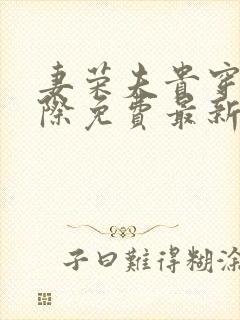 妻荣夫贵穿
际免费最新
子曰難得糊涂